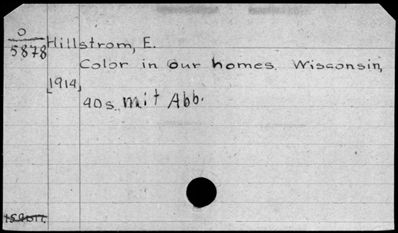 O
5878
Hillstrom, E.
Color in our homes. Wisconsin,
[1914]
40s. mit Abb.